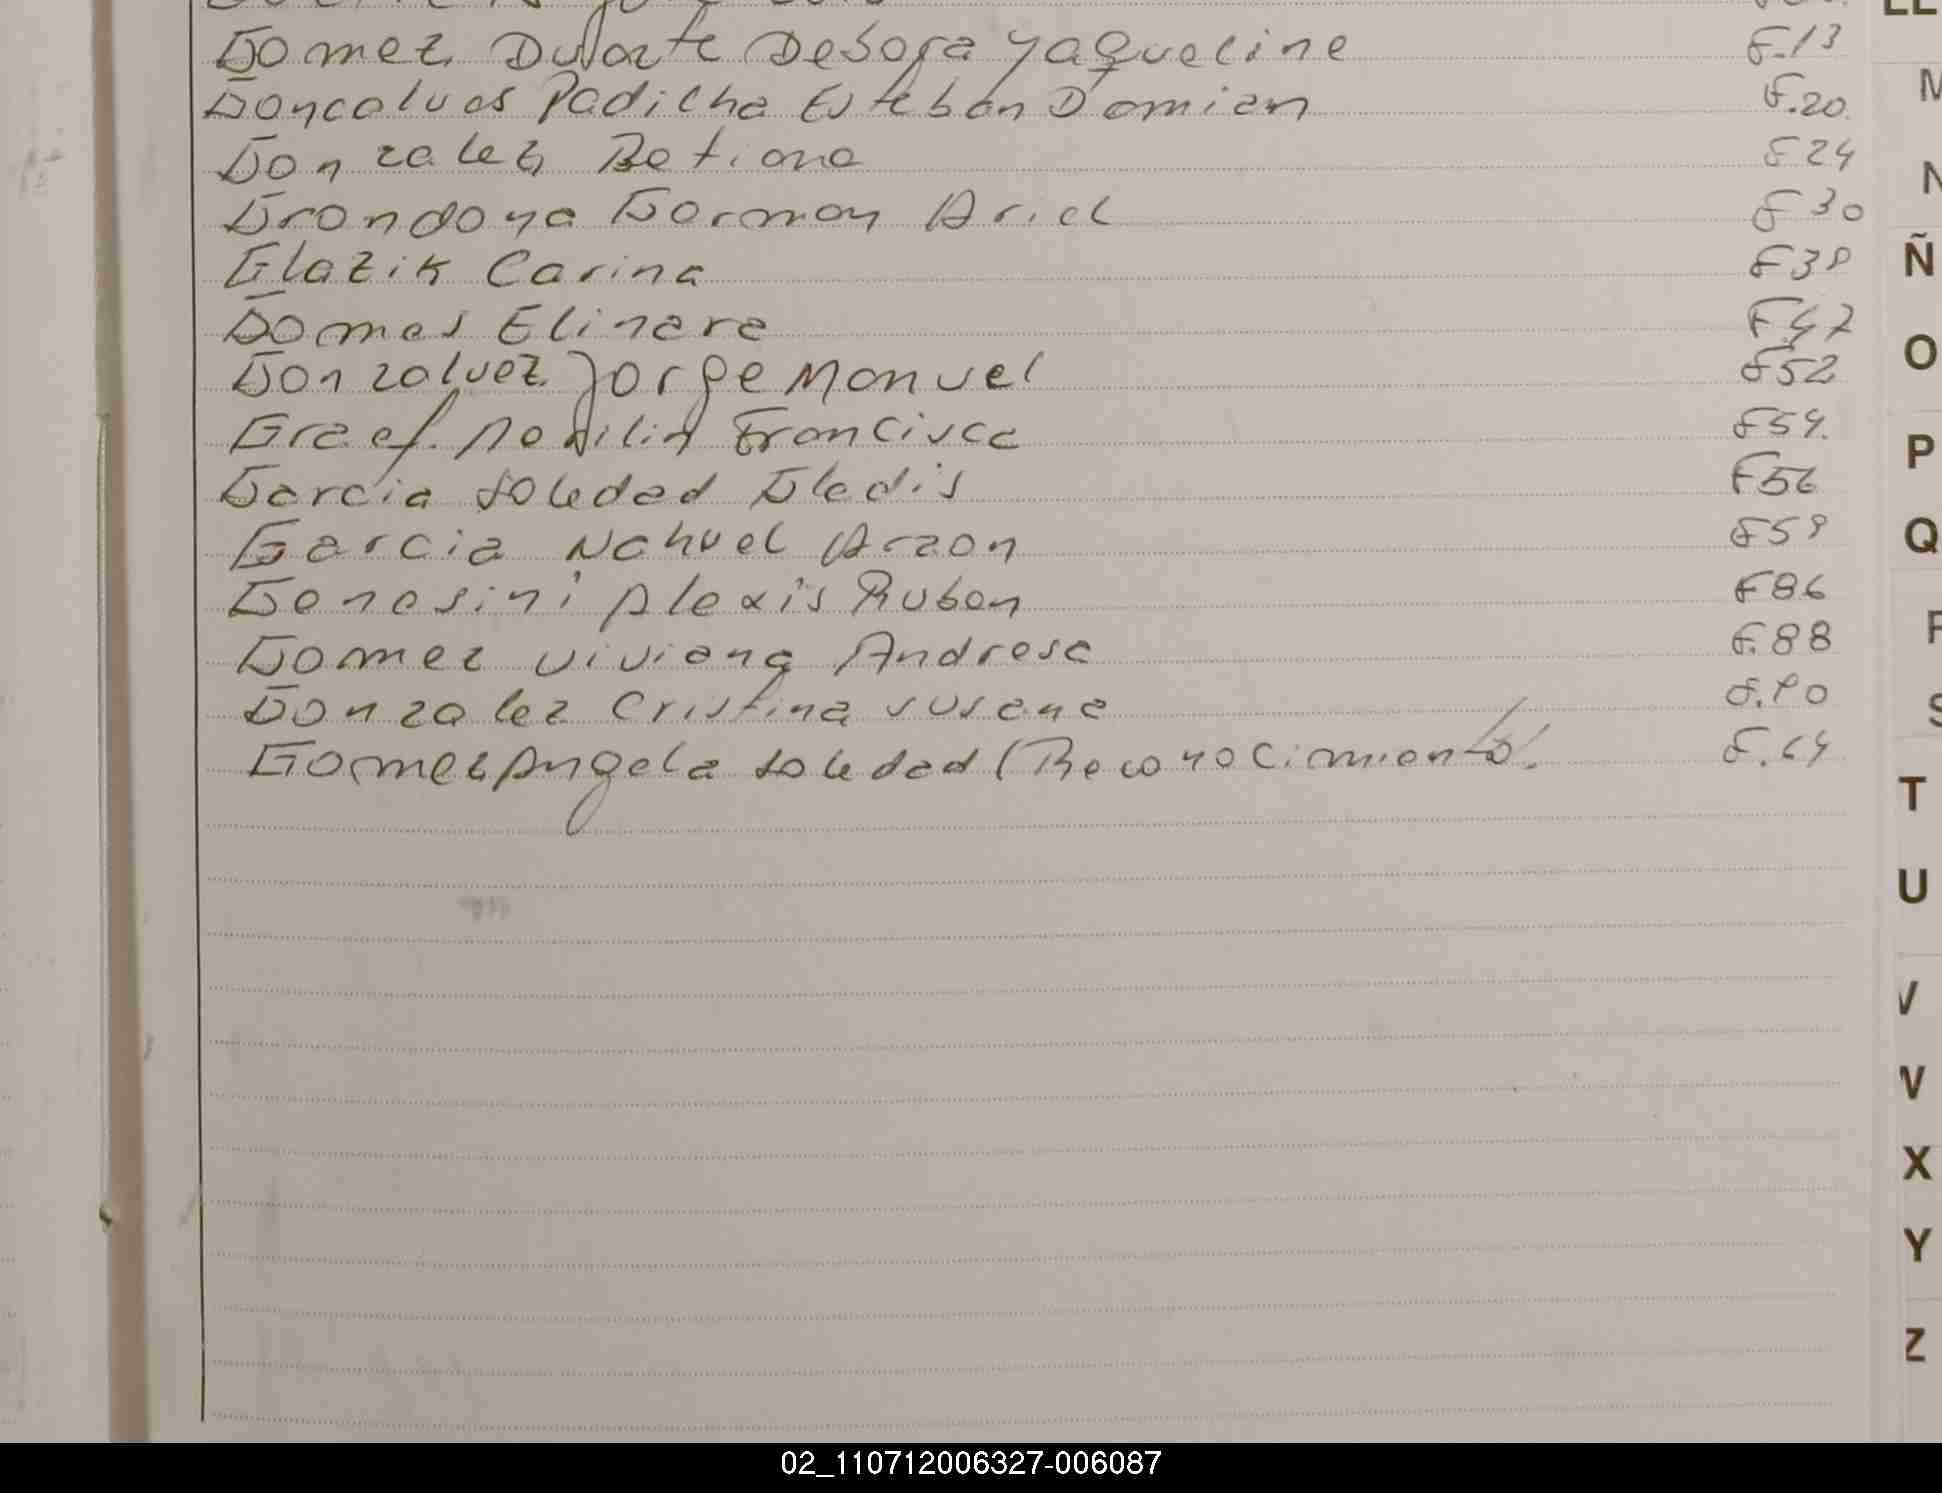 Gomez Duarte Debora Yaqueline F.13
Goncalves Padilha Esteban Damian F.20
Gonzalez Betiana F24
Grondona German Ariel F30
Glazik Carina F38
Gomes Elinara F.47
Gonzalvez Jorge Manuel F52
Graef Francisca F54.
Garcia Soledad Gladis F56
Garcia Nahuel Araon F59
Genesini Alexis Ruben F86
Gomez Viviana Andresa F.88
Gonzalez Cristina Susana F.90
Gomez Angela Soledad (Reconocimiento). F.64
LL
M
N
Ñ
O
P
Q
R
S
T
U
V
W
X
Y
Z
02_110712006327-006087